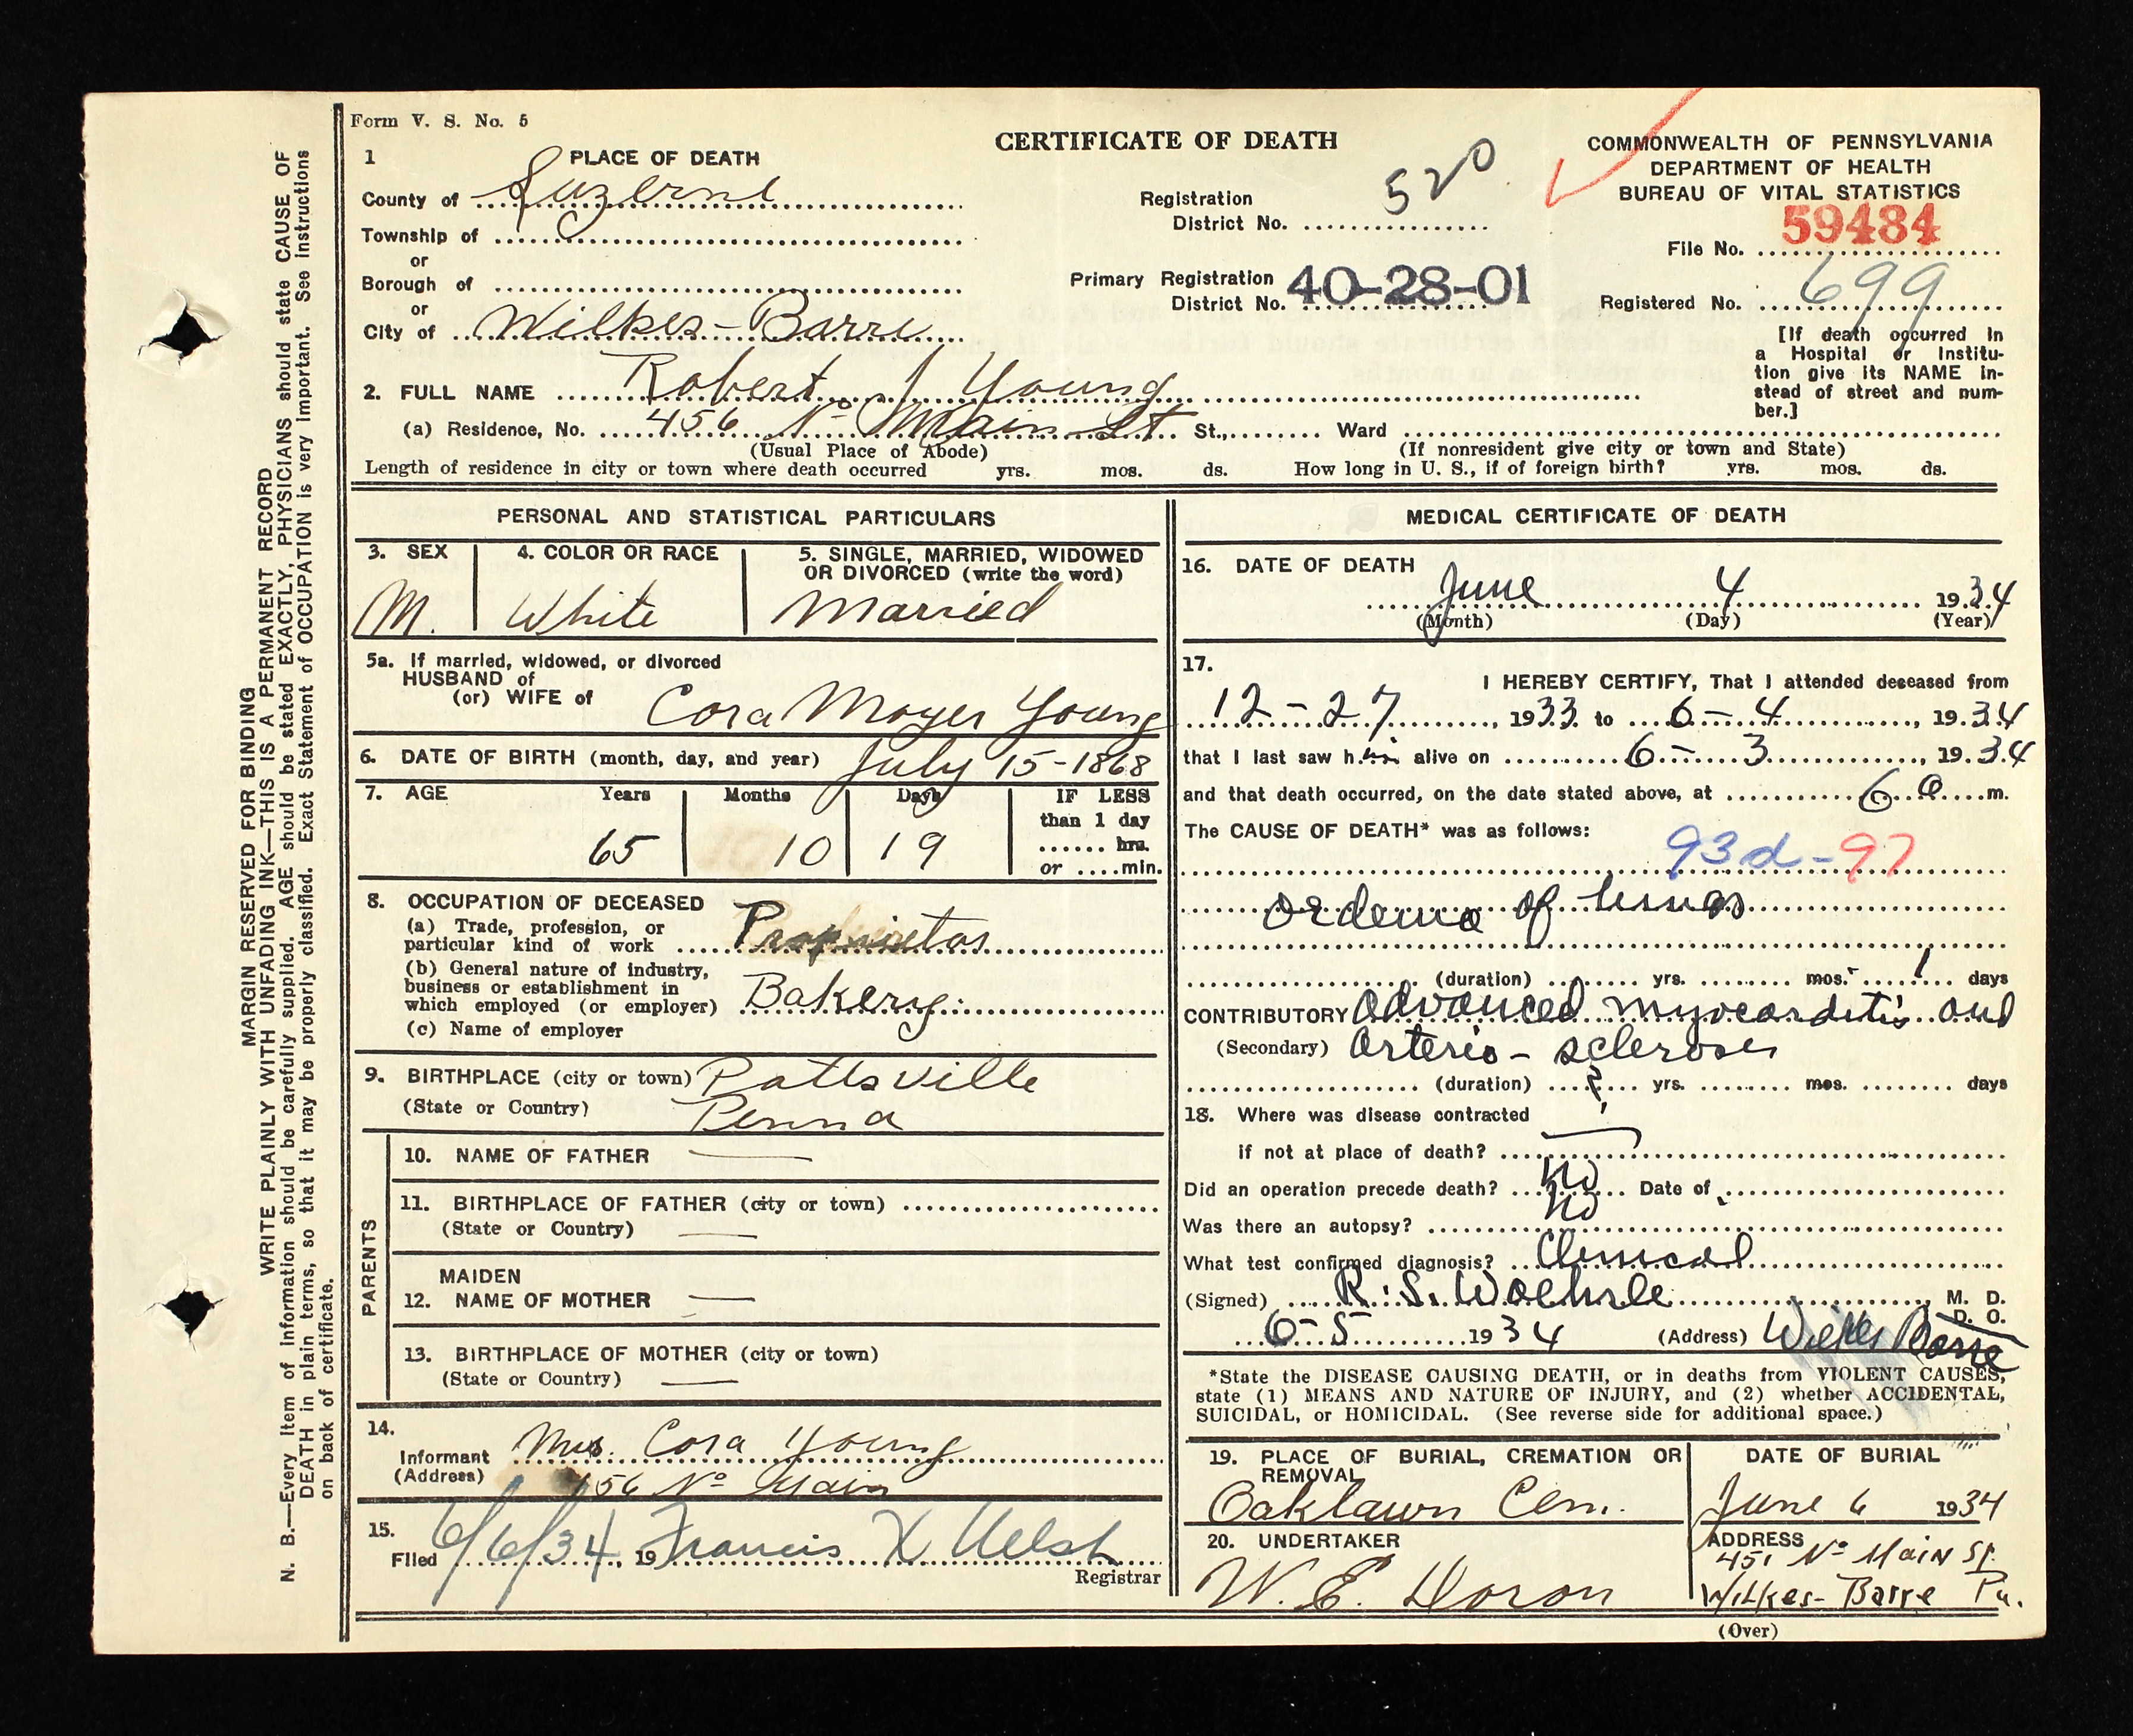 Form V. S. No. 5
CERTIFICATE OF DEATH
COMMONWEALTH OF PENNSYLVANIA
DEPARTMENT OF HEALTH
BUREAU OF VITAL STATISTICS
File No. 59484
Registered No. 699
[If death occurred in
a Hospital or Institu-
tion give its NAME in-
stead of street and num-
ber.]
Registration
District No. 520
Primary Registration
District No. 40-28-01
1 PLACE OF DEATH
County of Luzerne
Township of
or
Borough of
or
City of Wilkes-Barre
2. FULL NAME Robert J Young
(a) Residence, No. 456 No Main St St., Ward
(Usual Place of Abode) (If nonresident give city or town and State)
Length of residence in city or town where death occurred yrs. mos. ds. How long in U. S., if of foreign birth? yrs. mos. ds.
MARGIN RESERVED FOR BINDING
WRITE PLAINLY WITH UNFADING INK—THIS IS A PERMANENT RECORD
N. B.—Every item of information should be carefully supplied. AGE should be stated EXACTLY, PHYSICIANS should state CAUSE OF
DEATH in plain terms, so that it may be properly classified. Exact Statement of OCCUPATION is very important. See instructions
on back of certificate.
PERSONAL AND STATISTICAL PARTICULARS
3. SEX 4. COLOR OR RACE 5. SINGLE, MARRIED, WIDOWED
OR DIVORCED (write the word)
M. White Married
5a. If married, widowed, or divorced
HUSBAND of
(or) WIFE of Cora Moyer Young
6. DATE OF BIRTH (month, day, and year) July 15-1868
7. AGE Years Months Days IF LESS
than 1 day
...... hrs.
or .... min.
65 10 19
8. OCCUPATION OF DECEASED
(a) Trade, profession, or
particular kind of work Proprietor
(b) General nature of industry,
business or establishment in
which employed (or employer) Bakery
(c) Name of employer
9. BIRTHPLACE (city or town) Pottsville
(State or Country) Penna
PARENTS
10. NAME OF FATHER —
11. BIRTHPLACE OF FATHER (city or town)
(State or Country) —
MAIDEN
12. NAME OF MOTHER —
13. BIRTHPLACE OF MOTHER (city or town)
(State or Country) —
14.
Informant Mrs. Cora Young
(Address) 456 No Main
15.
Filed 6/6/34, 19 Francis X Welsh
Registrar
MEDICAL CERTIFICATE OF DEATH
16. DATE OF DEATH
June 4 1934
(Month) (Day) (Year)
17.
I HEREBY CERTIFY, That I attended deceased from
12-27, 1933 to 6-4, 1934
that I last saw him alive on 6-3, 1934
and that death occurred, on the date stated above, at 6 a m.
The CAUSE OF DEATH* was as follows:
93d-97
oedema of lungs
(duration) yrs. mos. 1 days
CONTRIBUTORY advanced myocarditis and
(Secondary) Arterio-sclerosis
(duration) ? yrs. mos. days
18. Where was disease contracted
if not at place of death? —
Did an operation precede death? No Date of
Was there an autopsy? No
What test confirmed diagnosis? Clinical
(Signed) R. S. Woehrle M. D.
D. O.
6-5 1934 (Address) Wilkes Barre
*State the DISEASE CAUSING DEATH, or in deaths from VIOLENT CAUSES,
state (1) MEANS AND NATURE OF INJURY, and (2) whether ACCIDENTAL,
SUICIDAL, or HOMICIDAL. (See reverse side for additional space.)
19. PLACE OF BURIAL, CREMATION OR
REMOVAL
Oaklawn Cem.
DATE OF BURIAL
June 6 1934
20. UNDERTAKER
W. E. Doron
ADDRESS
451 No Main St.
Wilkes-Barre Pa.
(Over)